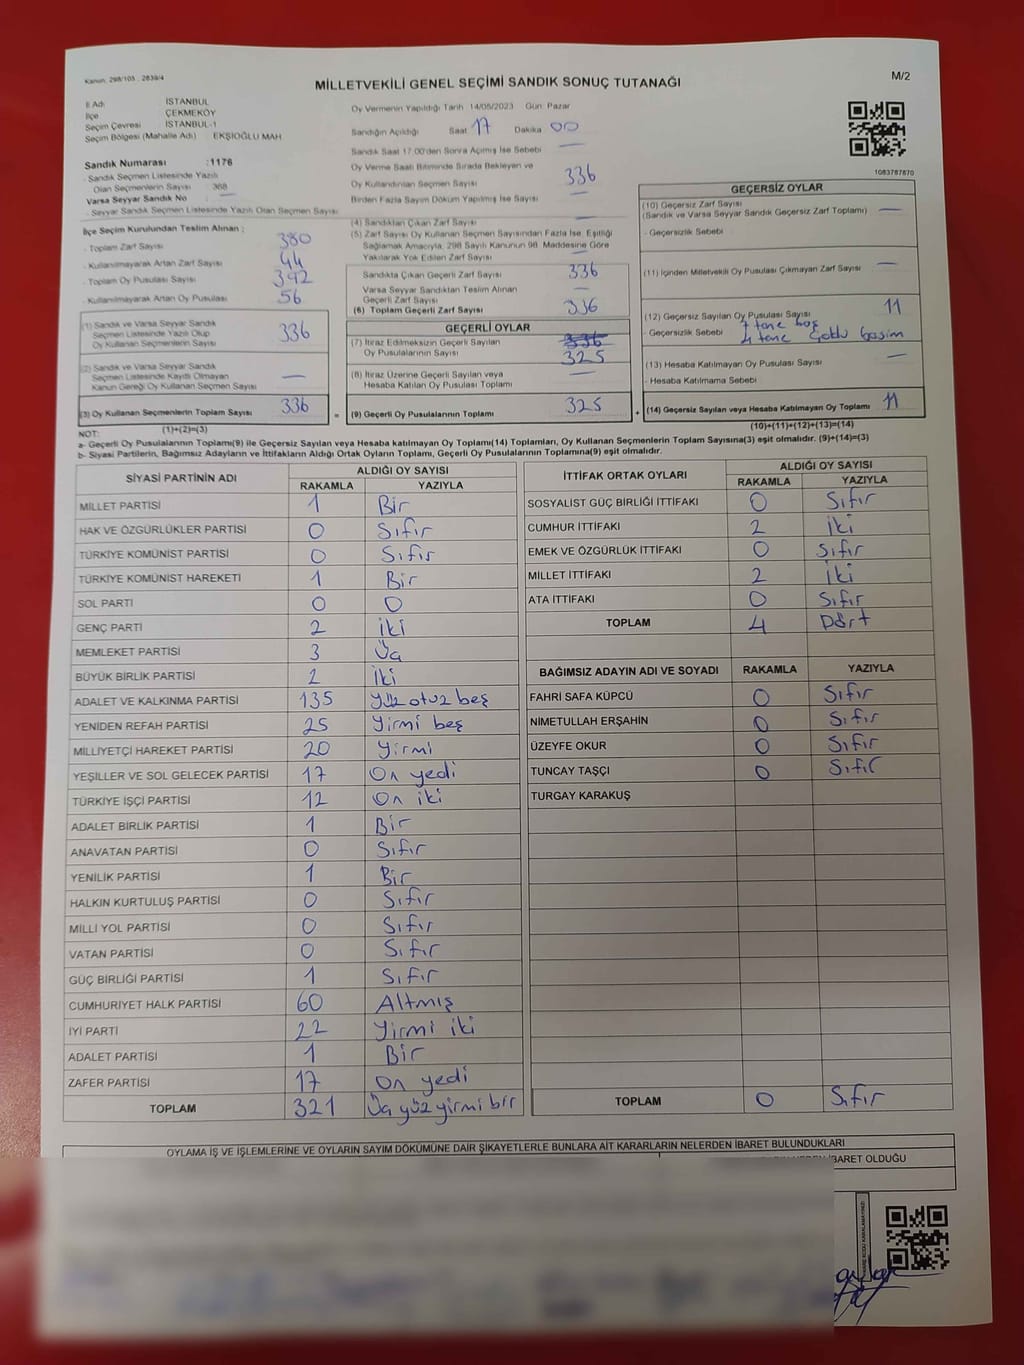 Kanun: 298/105 ; 2839/4
MİLLETVEKİLİ GENEL SEÇİMİ SANDIK SONUÇ TUTANAĞI
M/2
İl Adı : İSTANBUL
İlçe : ÇEKMEKÖY
Seçim Çevresi : İSTANBUL-1
Seçim Bölgesi (Mahalle Adı) : EKŞİOĞLU MAH.
Sandık Numarası :1176
- Sandık Seçmen Listesinde Yazılı
Olan Seçmenlerin Sayısı : 368
Varsa Seyyar Sandık No —
- Seyyar Sandık Seçmen Listesinde Yazılı Olan Seçmen Sayısı
İlçe Seçim Kurulundan Teslim Alınan ;
- Toplam Zarf Sayısı 380
- Kullanılmayarak Artan Zarf Sayısı 44
- Toplam Oy Pusulası Sayısı 392
- Kullanılmayarak Artan Oy Pusulası 56
(1) Sandık ve Varsa Seyyar Sandık
Seçmen Listesinde Yazılı Olup
Oy Kullanan Seçmenlerin Sayısı 336
(2) Sandık ve Varsa Seyyar Sandık
Seçmen Listesinde Kayıtlı Olmayan
Kanun Gereği Oy Kullanan Seçmen Sayısı —
(3) Oy Kullanan Seçmenlerin Toplam Sayısı 336
(1)+(2)=(3)
Oy Vermenin Yapıldığı Tarih 14/05/2023 Gün Pazar
Sandığın Açıldığı Saat 17 Dakika 00
Sandık Saat 17:00'den Sonra Açımış İse Sebebi —
Oy Verme Saati Bitiminde Sırada Bekleyen ve
Oy Kullandırılan Seçmen Sayısı 336
Birden Fazla Sayım Döküm Yapılmış İse Sayısı —
(4) Sandıktan Çıkan Zarf Sayısı —
(5) Zarf Sayısı Oy Kullanan Seçmen Sayısından Fazla İse, Eşitliği
Sağlamak Amacıyla, 298 Sayılı Kanunun 98. Maddesine Göre
Yakılarak Yok Edilen Zarf Sayısı —
Sandıkta Çıkan Geçerli Zarf Sayısı 336
Varsa Seyyar Sandıktan Teslim Alınan
Geçerli Zarf Sayısı —
(6) Toplam Geçerli Zarf Sayısı 336
GEÇERLİ OYLAR
(7) İtiraz Edilmeksizin Geçerli Sayılan
Oy Pusulalarının Sayısı 336 325
(8) İtiraz Üzerine Geçerli Sayılan veya
Hesaba Katılan Oy Pusulası Toplamı —
= (9) Geçerli Oy Pusulalarının Toplamı 325
1083787870
GEÇERSİZ OYLAR
(10) Geçersiz Zarf Sayısı —
(Sandık ve Varsa Seyyar Sandık Geçersiz Zarf Toplamı)
- Geçersizlik Sebebi
(11) İçinden Milletvekili Oy Pusulası Çıkmayan Zarf Sayısı —
(12) Geçersiz Sayılan Oy Pusulası Sayısı 11
- Geçersizlik Sebebi 7 tane boş
4 tane çoklu basım
(13) Hesaba Katılmayan Oy Pusulası Sayısı —
- Hesaba Katılmama Sebebi
+ (14) Geçersiz Sayılan veya Hesaba Katılmayan Oy Toplamı 11
(10)+(11)+(12)+(13)=(14)
NOT:
a- Geçerli Oy Pusulalarının Toplamı(9) ile Geçersiz Sayılan veya Hesaba katılmayan Oy Toplamı(14) Toplamları, Oy Kullanan Seçmenlerin Toplam Sayısına(3) eşit olmalıdır. (9)+(14)=(3)
b- Siyasi Partilerin, Bağımsız Adayların ve İttifakların Aldığı Ortak Oyların Toplamı, Geçerli Oy Pusulalarının Toplamına(9) eşit olmalıdır.
SİYASİ PARTİNİN ADI ALDIĞI OY SAYISI
RAKAMLA YAZIYLA
MİLLET PARTİSİ 1 Bir
HAK VE ÖZGÜRLÜKLER PARTİSİ 0 Sıfır
TÜRKİYE KOMÜNİST PARTİSİ 0 Sıfır
TÜRKİYE KOMÜNİST HAREKETİ 1 Bir
SOL PARTİ 0 0
GENÇ PARTİ 2 iki
MEMLEKET PARTİSİ 3 Üç
BÜYÜK BİRLİK PARTİSİ 2 İki
ADALET VE KALKINMA PARTİSİ 135 Yüz otuz beş
YENİDEN REFAH PARTİSİ 25 Yirmi beş
MİLLİYETÇİ HAREKET PARTİSİ 20 Yirmi
YEŞİLLER VE SOL GELECEK PARTİSİ 17 On yedi
TÜRKİYE İŞÇİ PARTİSİ 12 On iki
ADALET BİRLİK PARTİSİ 1 Bir
ANAVATAN PARTİSİ 0 Sıfır
YENİLİK PARTİSİ 1 Bir
HALKIN KURTULUŞ PARTİSİ 0 Sıfır
MİLLİ YOL PARTİSİ 0 Sıfır
VATAN PARTİSİ 0 Sıfır
GÜÇ BİRLİĞİ PARTİSİ 1 Sıfır
CUMHURİYET HALK PARTİSİ 60 Altmış
İYİ PARTİ 22 Yirmi iki
ADALET PARTİSİ 1 Bir
ZAFER PARTİSİ 17 On yedi
TOPLAM 321 Üç yüz yirmi bir
İTTİFAK ORTAK OYLARI ALDIĞI OY SAYISI
RAKAMLA YAZIYLA
SOSYALİST GÜÇ BİRLİĞİ İTTİFAKI 0 Sıfır
CUMHUR İTTİFAKI 2 İki
EMEK VE ÖZGÜRLÜK İTTİFAKI 0 Sıfır
MİLLET İTTİFAKI 2 İki
ATA İTTİFAKI 0 Sıfır
TOPLAM 4 Dört
BAĞIMSIZ ADAYIN ADI VE SOYADI RAKAMLA YAZIYLA
FAHRİ SAFA KÜPCÜ 0 Sıfır
NİMETULLAH ERŞAHİN 0 Sıfır
ÜZEYFE OKUR 0 Sıfır
TUNCAY TAŞÇI 0 Sıfır
TURGAY KARAKUŞ
TOPLAM 0 Sıfır
OYLAMA İŞ VE İŞLEMLERİNE VE OYLARIN SAYIM DÖKÜMÜNE DAİR ŞİKAYETLERLE BUNLARA AİT KARARLARIN NELERDEN İBARET BULUNDUKLARI
İBARET OLDUĞU